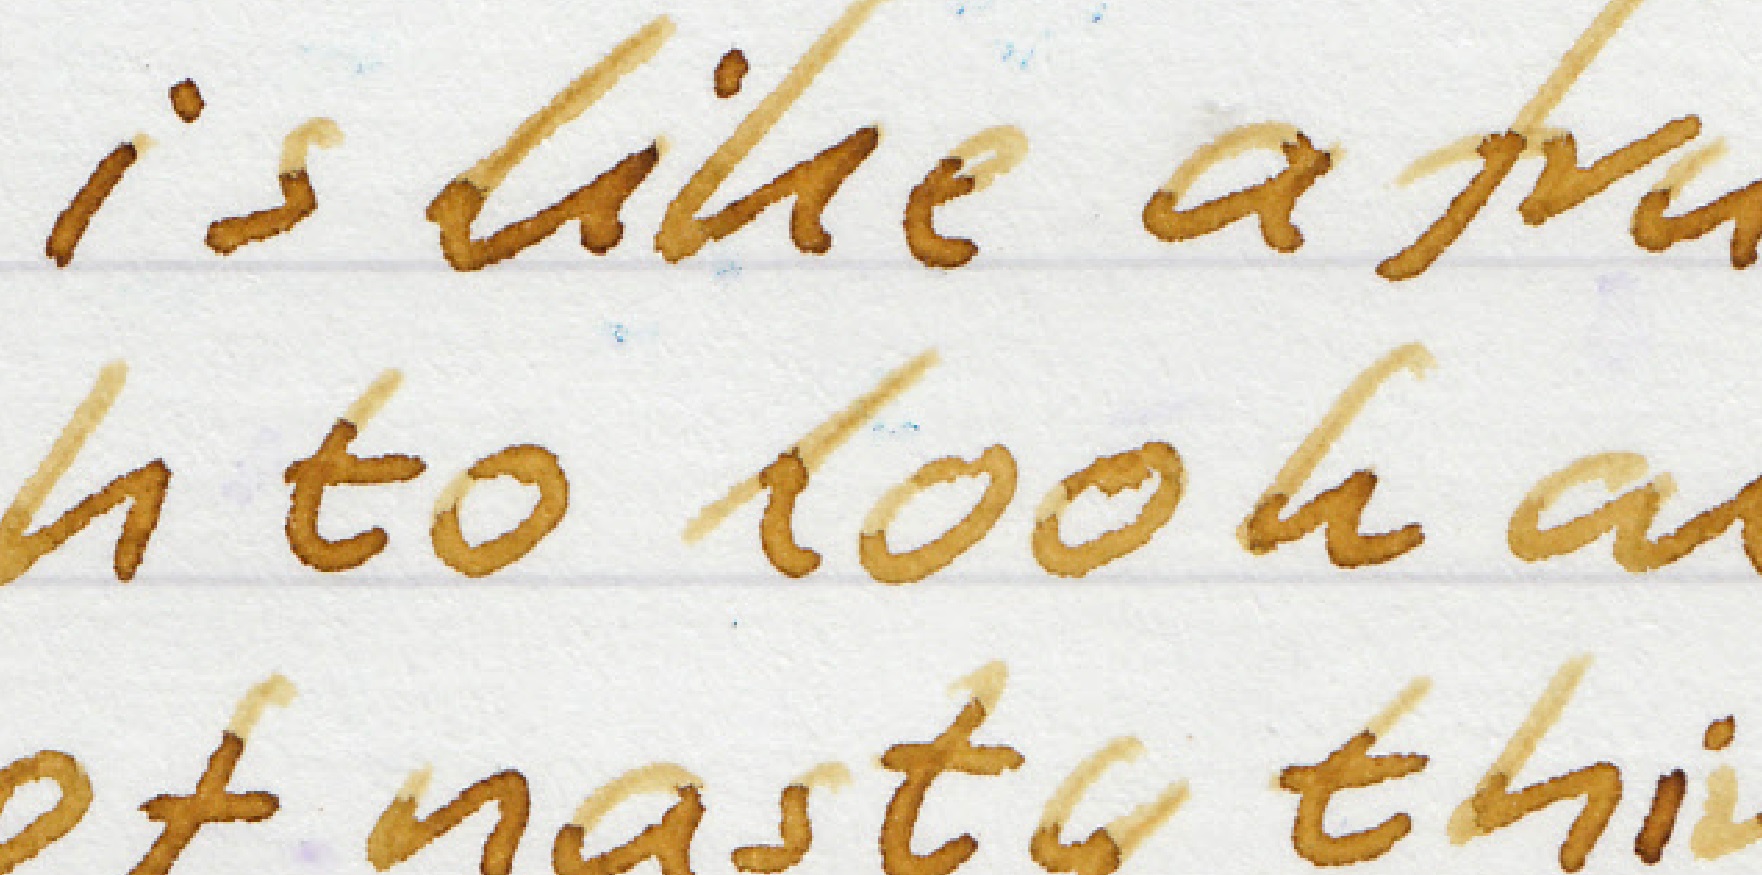 is like a fu
h to look a
of nasty thi